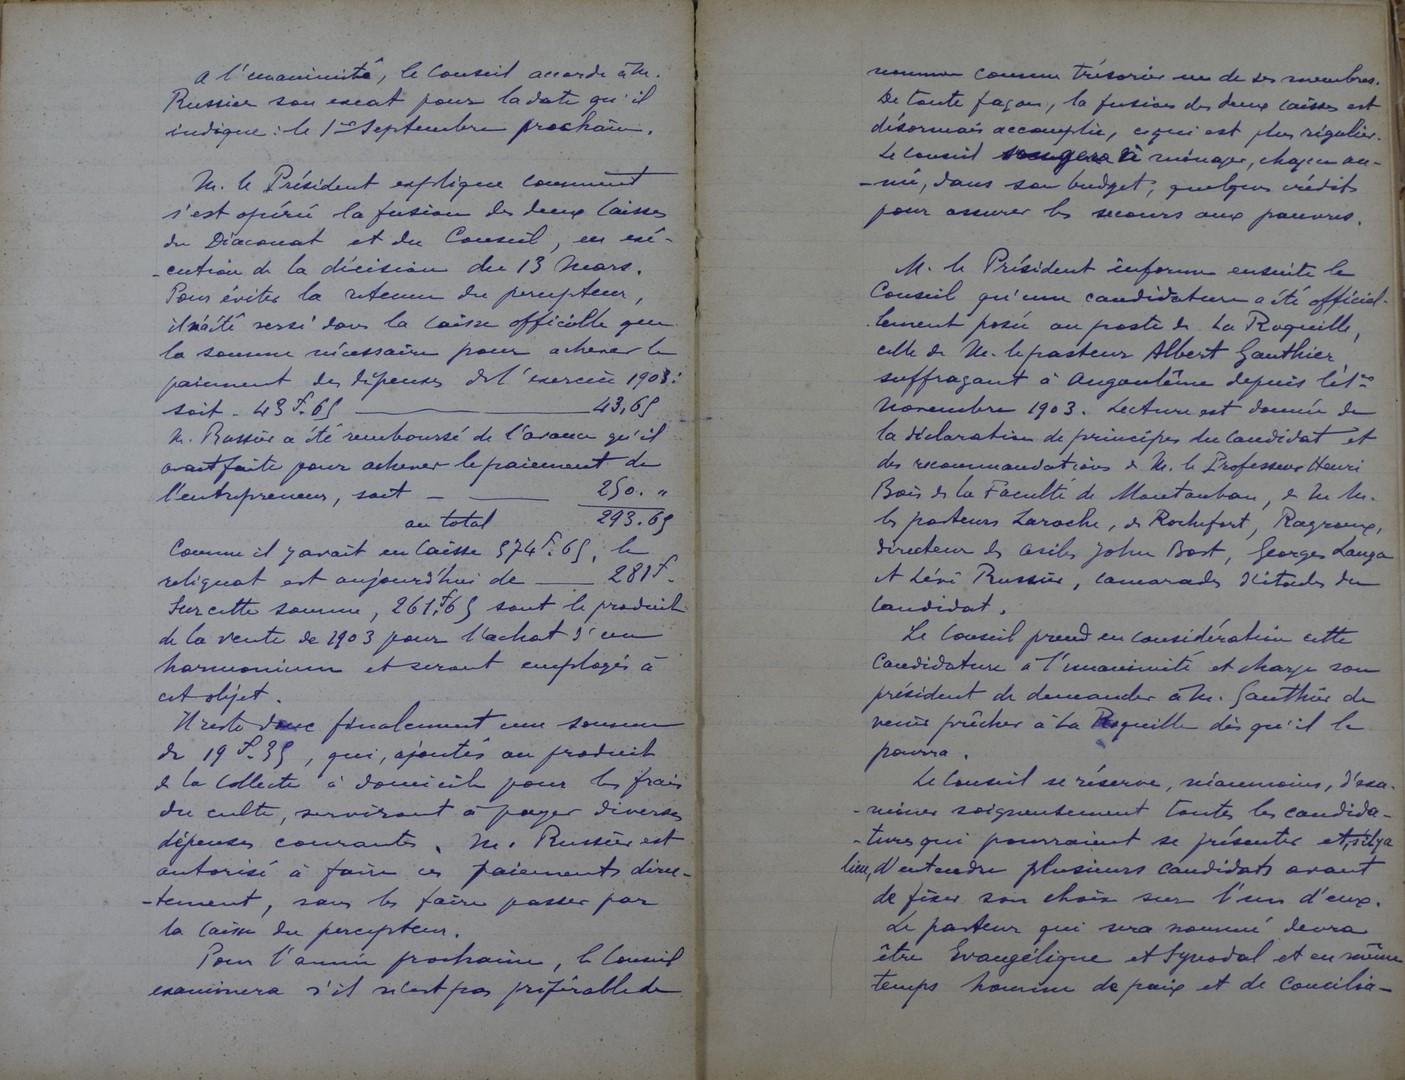 A l'unanimité, le Conseil accorde à M.
Russier son exeat pour la date qu'il
indique : le 1er Septembre prochain.
M. le Président explique comment
s'est opérée la fusion des deux Caisses
du Diaconat et du Conseil, en exé-
-cution de la décision du 13 Mars.
Pour éviter la retenue du percepteur,
il n'a été versé dans la Caisse officielle que
la somme nécessaire pour achever le
paiement des dépenses de l'exercice 1903 :
soit - 43 f. 65 43,65
M. Russier a été remboursé de l'avance qu'il
avait faite pour achever le paiement de
l'entrepreneur, soit - 250. "
au total 293.65
Comme il y avait en Caisse 574 f. 65, le
reliquat est aujourd'hui de 281 f.
Sur cette somme, 261 f. 65 sont le produit
de la vente de 1903 pour l'achat d'un
harmonium et seront employés à
cet objet.
Il reste donc finalement une somme
de 19 f. 35, qui, ajoutés au produit
de la Collecte à domicile pour les frais
du culte, serviront à payer diverses
dépenses courantes. M. Russier est
autorisé à faire ces paiements direc-
-tement, sans les faire passer par
la Caisse du percepteur.
Pour l'année prochaine, le Conseil
examinera s'il n'est pas préférable de
nommer comme trésorier un de ses membres.
De toute façon, la fusion des deux Caisses est
désormais accomplie, ce qui est plus régulier.
Le Conseil songera à ménager, chaque an-
-née, dans son budget, quelques crédits
pour assurer les secours aux pauvres.
M. le Président informe ensuite le
Conseil qu'une candidature a été officiel-
-lement posée au poste de La Roquille,
celle de M. le pasteur Albert Gauthier
suffragant à Angoulême depuis le 1er
Novembre 1903. Lecture est donnée de
la déclaration de principes du Candidat et
des recommandations de M. le Professeur Henri
Bois de la Faculté de Montauban, de M M.
les pasteurs Laroche, de Rochefort, Rayroux,
directeur des asiles John Bost, Georges Lauga
et Lévi Russier, camarades d'études du
Candidat.
Le Conseil prend en considération cette
Candidature à l'unanimité et charge son
président de demander à M. Gauthier de
venir prêcher à La Roquille dès qu'il le
pourra.
Le Conseil se réserve, néanmoins, d'exa-
-miner soigneusement toutes les candida-
-tures qui pourraient se présenter et, s'il y a
lieu, d'entendre plusieurs Candidats avant
de fixer son choix sur l'un d'eux.
Le pasteur qui sera nommé devra
être Evangélique et Synodal et en même
temps homme de paix et de Concilia-